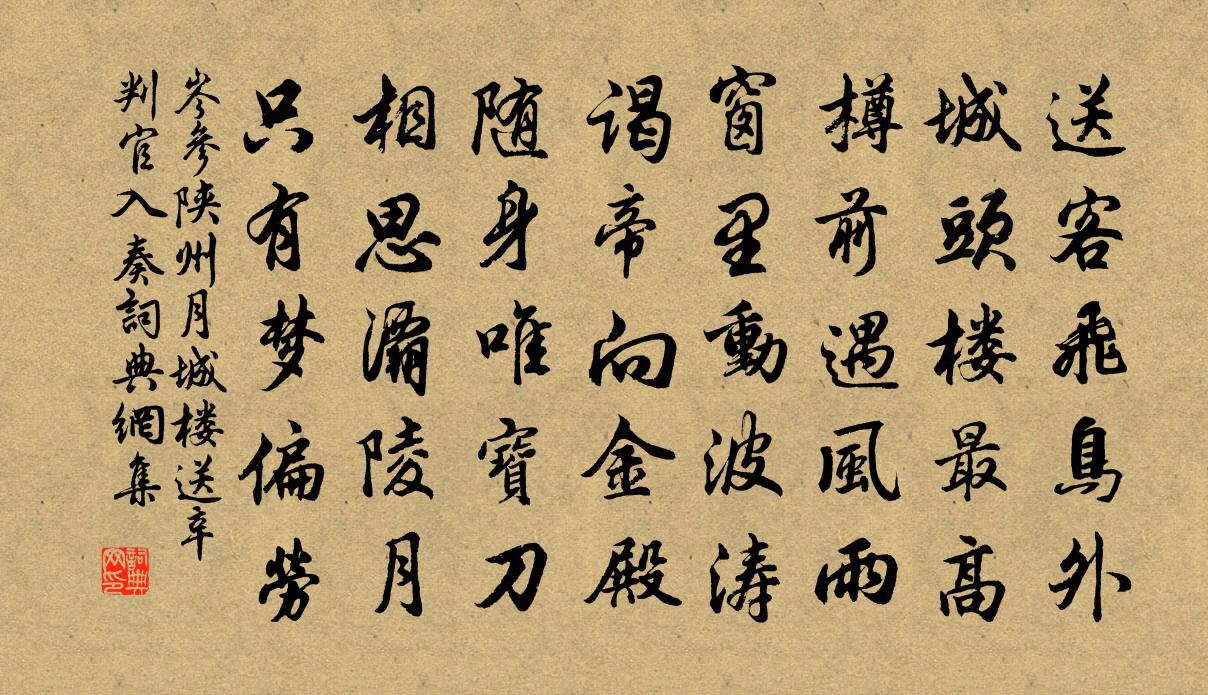 送客飛鳥外
城頭楼最高
樽前遇風雨
窗里動波涛
谒帝向金殿
随身唯寶刀
相思灞陵月
只有梦偏劳
岑參陕州月城楼送辛
判官入奏詞典網集
詞典网印